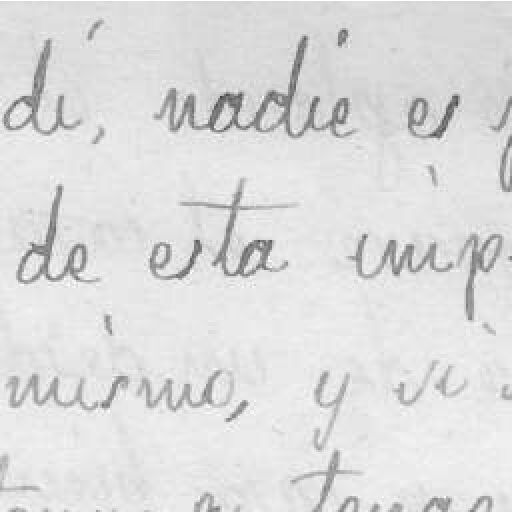 dí, nadie es
de esta imp
mismo, y si